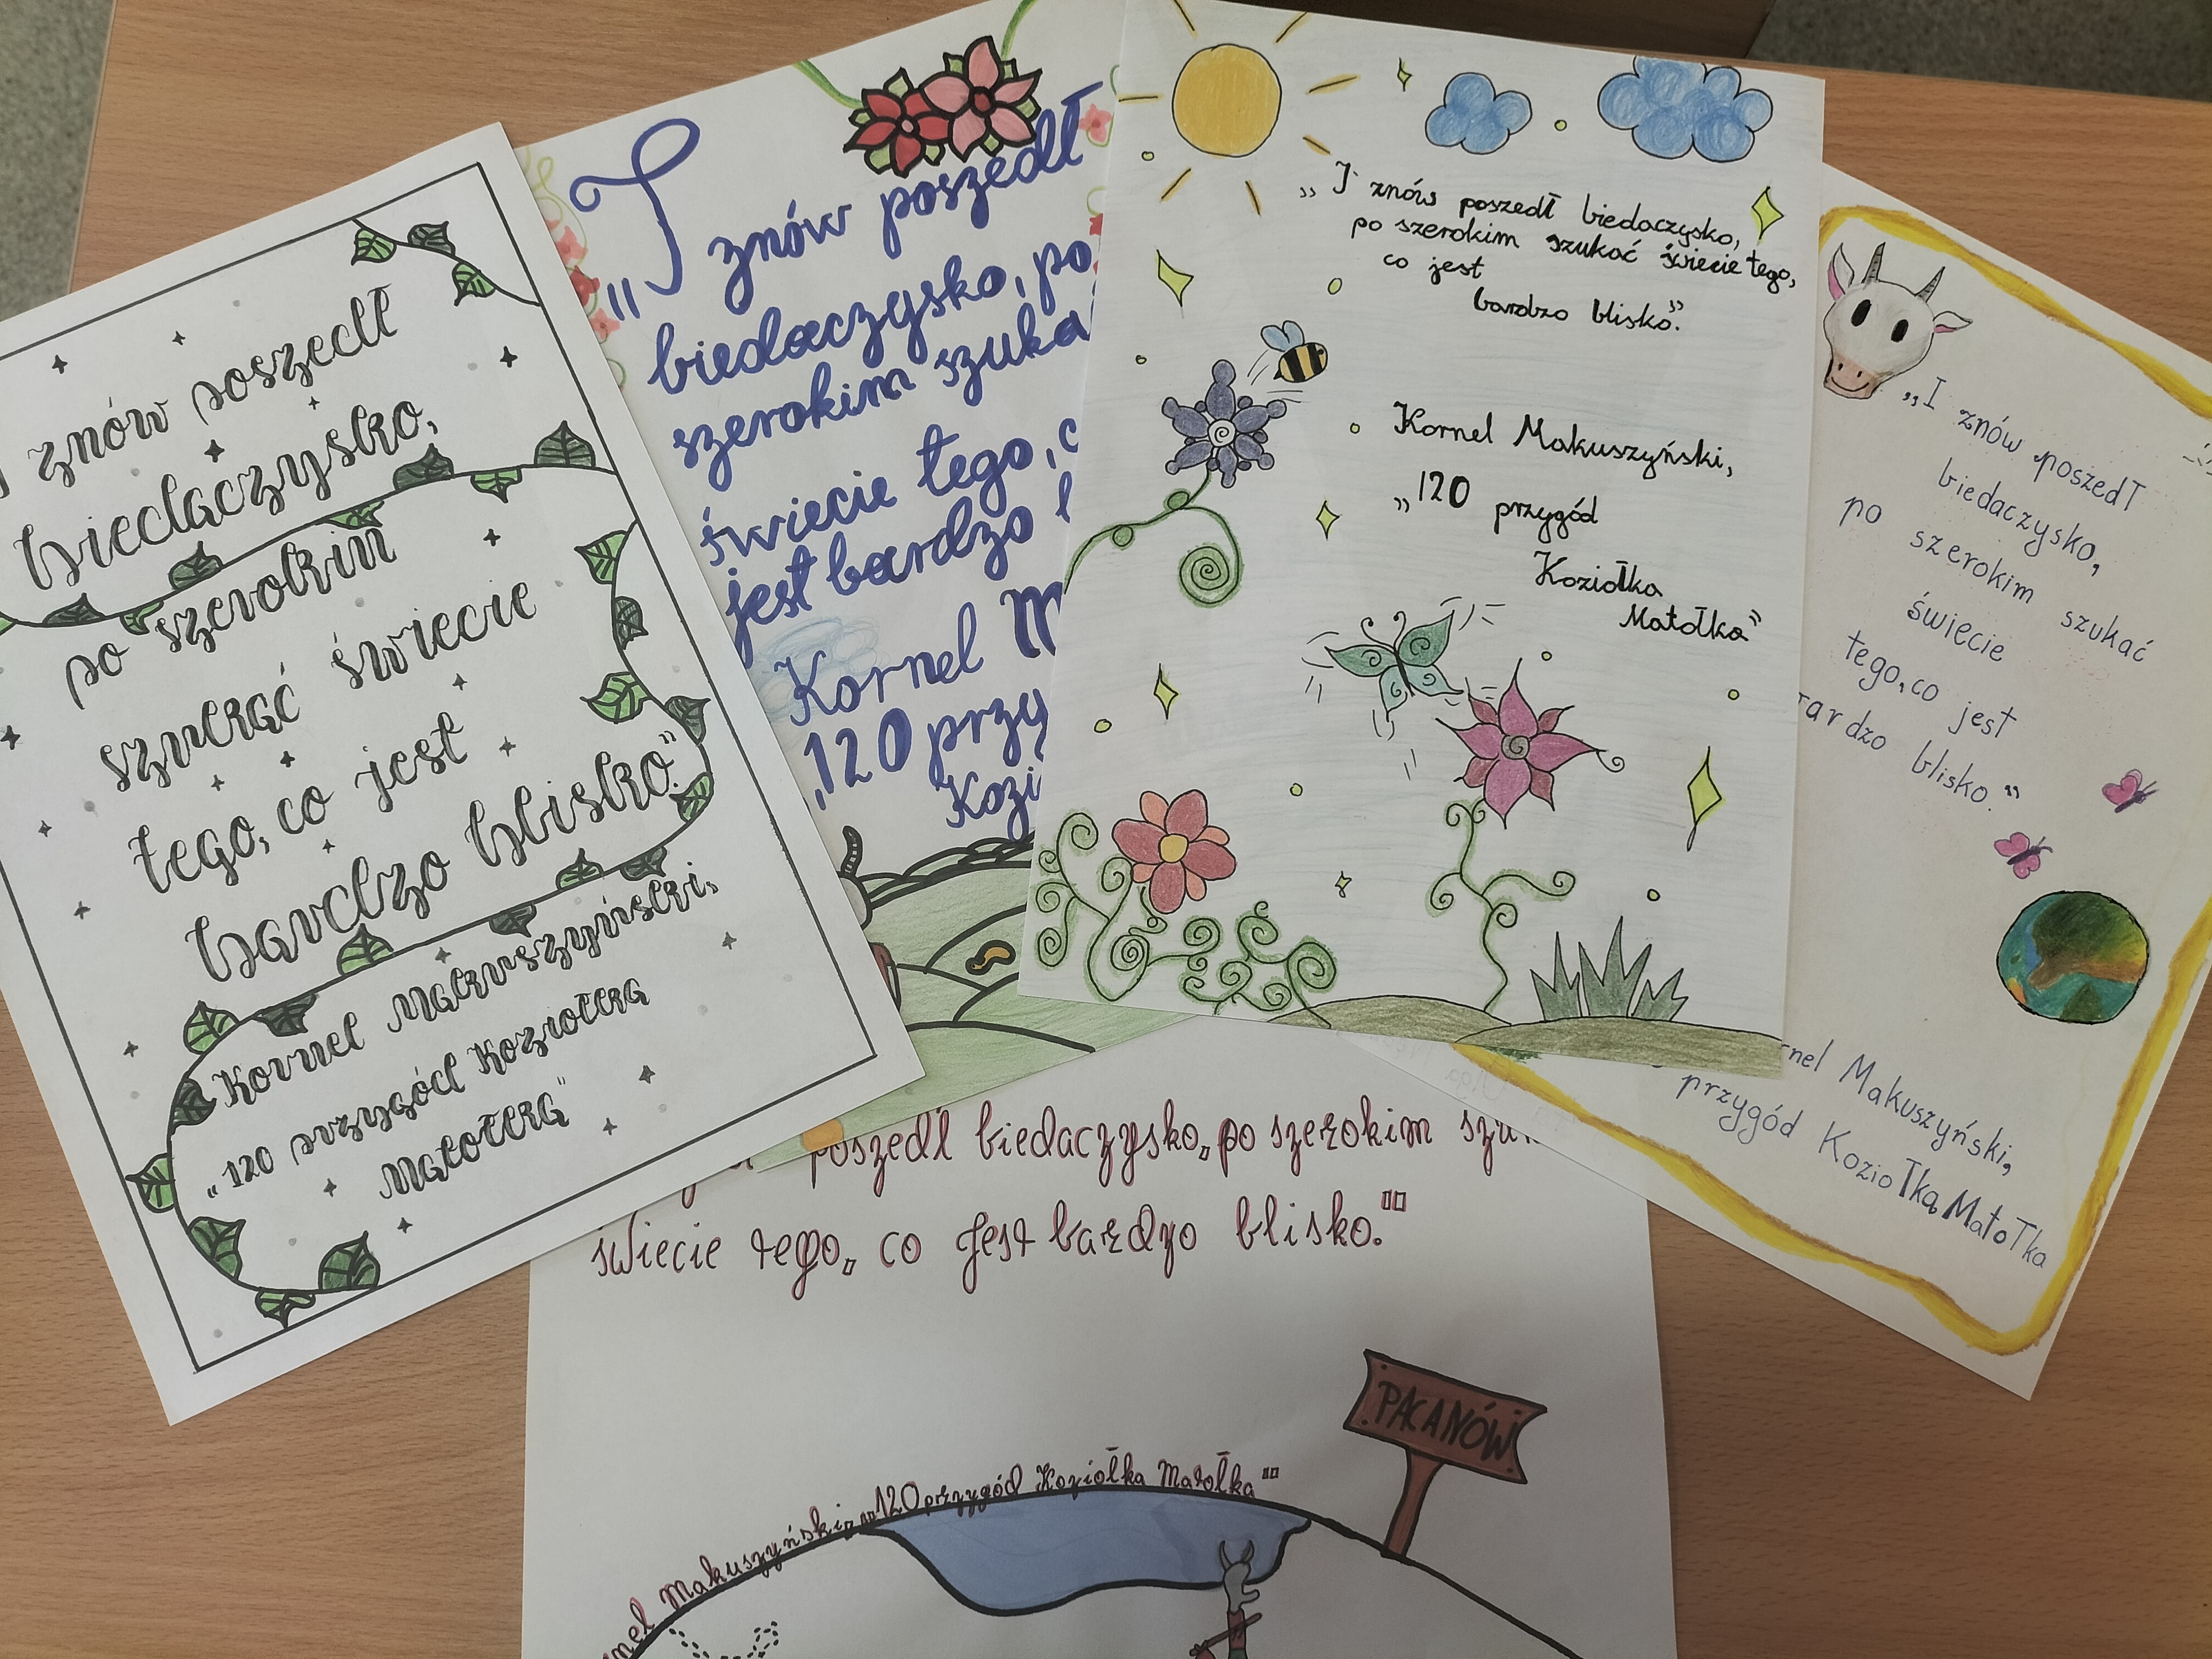 I znów poszedł
biedaczysko,
po szerokim
szukać świecie
tego, co jest
bardzo blisko."
Kornel Makuszyński,
„120 przygód Koziołka
Matołka"
„I znów poszedł
biedaczysko, po
szerokim szuka
świecie tego, c
jest bardzo
Kornel M
„120 przyg
Kozi
„I znów poszedł biedaczysko,
po szerokim szukać świecie tego,
co jest
bardzo blisko."
Kornel Makuszyński,
„120 przygód
Koziołka
Matołka"
„I znów poszedł
biedaczysko,
po szerokim szukać
świecie
tego, co jest
ardzo blisko."
rnel Makuszyński,
przygód Koziołka Matołka
poszedł biedaczysko, po szerokim szu
świecie tego, co jest bardzo blisko."
PACANÓW
nel Makuszyński, „120 przygód Koziołka Matołka"